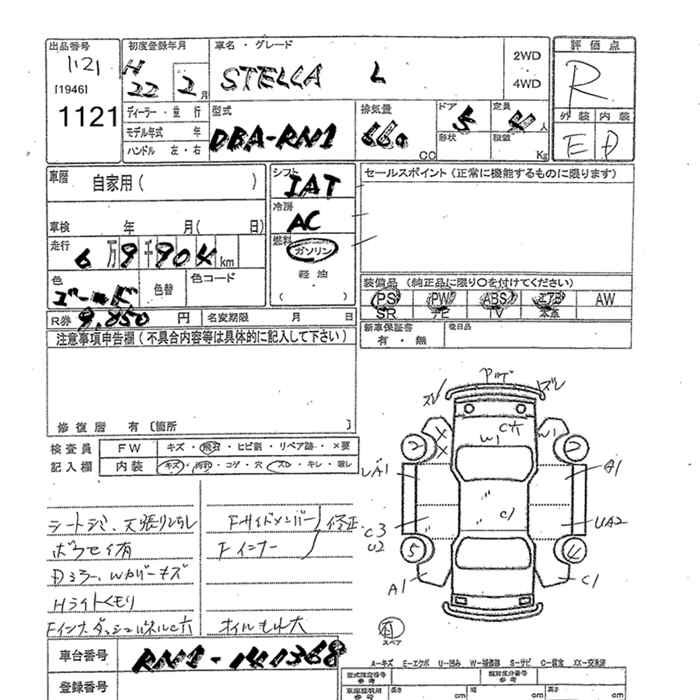 出品番号 初度登録年月 車名・グレード 評価点
1121 H 22 2月 STELLA L 2WD 4WD R
[1946]
1121 ディーラー・並行 型式 排気量 ドア 定員 外装 内装
モデル年式 年 DBA-RN1 660 CC 5 4人 E D
ハンドル 左・右 形状 積載 Kg
車歴 自家用( ) シフト IAT セールスポイント(正常に機能するものに限ります)
冷房 AC
車検 年 月( 日)
走行 6万9千904km 燃料 ガソリン
軽油
( )
色 ゴールド 色替 色コード 装備品(純正品に限り○を付けてください)
PS PW ABS エアB AW
SR ナビ TV 本皮
R券 9,850円 名変期限 月 日 新車保証書 後日品
有・無
注意事項申告欄(不具合内容等は具体的に記入して下さい)
修復歴 有〔箇所 〕
検査員 FW キズ・飛石・ヒビ割・リペア跡・×要
記入欄 内装 キズ・汚れ・コゲ・穴・スレ・キレ・張レ
ズレ ズレ
C穴
W1 W1
2 X X 2
UA1 A1
C3 C1 UA2
U2
5 4
A1 C1
シートジミ、天張りヨゴレ Fサイドメンバー 修正
ボウセイ有 Fインナー
Dミラー、Wカバーキズ
Hライトくもり
Fインナ、ダッシュパネルC穴 オイルもれ大
有
スペア
車台番号 RN1-141368
A-キズ E-エクボ U-凹み W-補修跡 S-サビ C-腐食 XX-交換済
登録番号 型式指定番号 参考 類別区分番号 参考
長さ cm 幅 cm 高さ cm